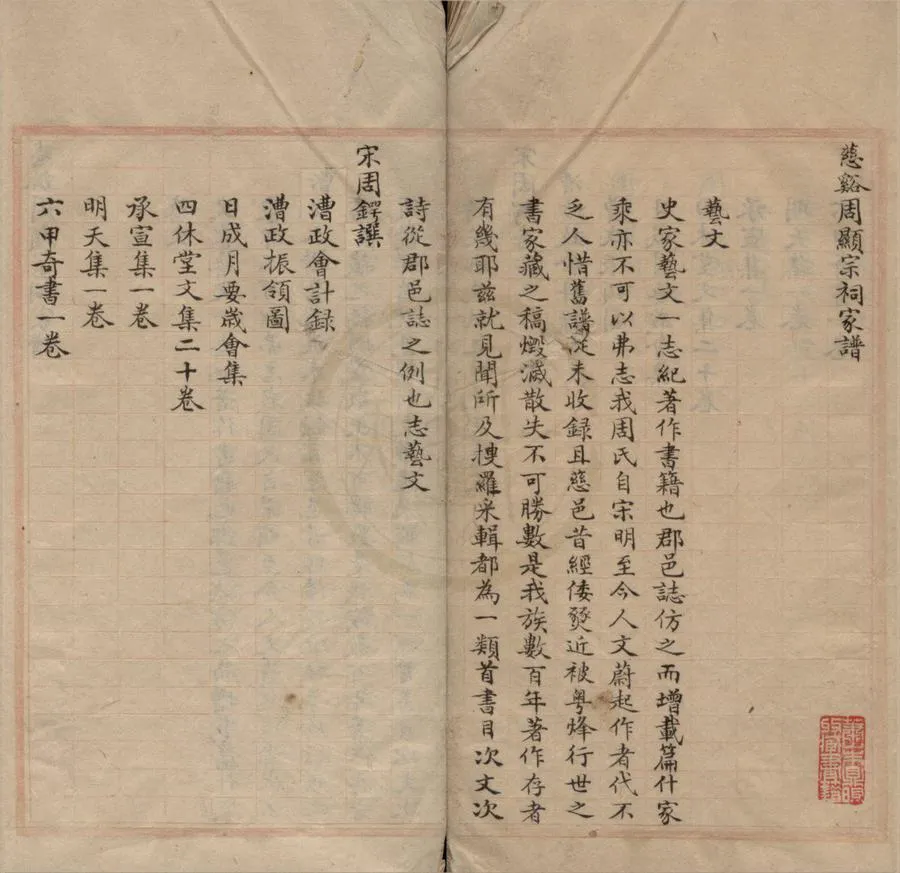 慈谿周顯宗祠家譜
藝文
史家藝文一志紀著作書籍也郡邑誌仿之而增載篇什家
乘亦不可以弗志我周氏自宋明至今人文蔚起作者代不
乏人惜舊譜從未收録且慈邑昔經倭燹近被粵烽行世之
書家藏之稿燬滅散失不可勝數是我族數百年著作存者
有幾耶兹就見聞所及搜羅采輯都為一類首書目次文次
詩從郡邑誌之例也志藝文
宋周鍔譔
漕政會計録
漕政振領圖
日成月要歲會集
四休堂文集二十卷
承宣集一卷
明天集一卷
六甲奇書一卷